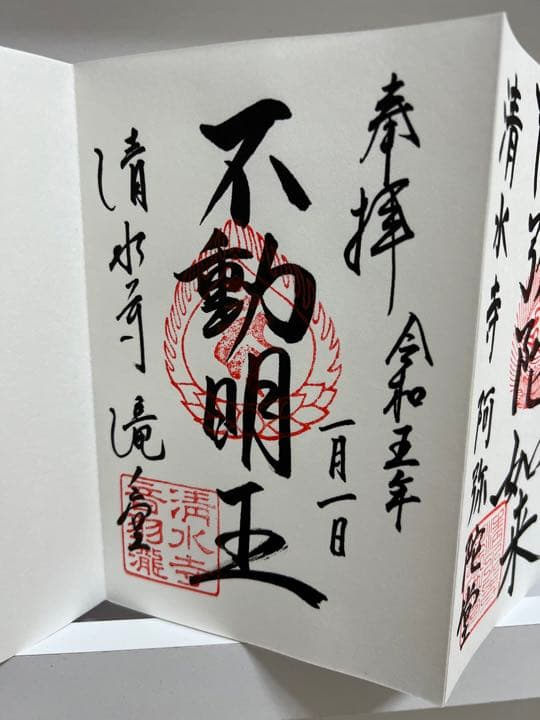 奉拝
令和五年
一月一日
不動明王
清水寺 滝堂
清水寺
音羽瀧
阿弥陀如来
清水寺 阿弥陀堂